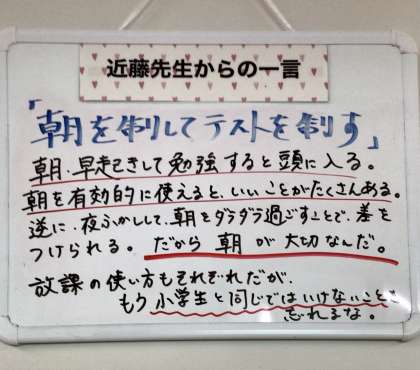 近藤先生からの一言
「朝を制してテストを制す」
朝、早起きして勉強すると頭に入る。
朝を有効的に使えると、いいことがたくさんある。
逆に、夜ふかしして、朝をダラダラ過ごすことで、差を
つけられる。だから 朝 が 大切なんだ。
放課の使い方もそれぞれだが、
もう小学生と同じではいけないことを
忘れるな。